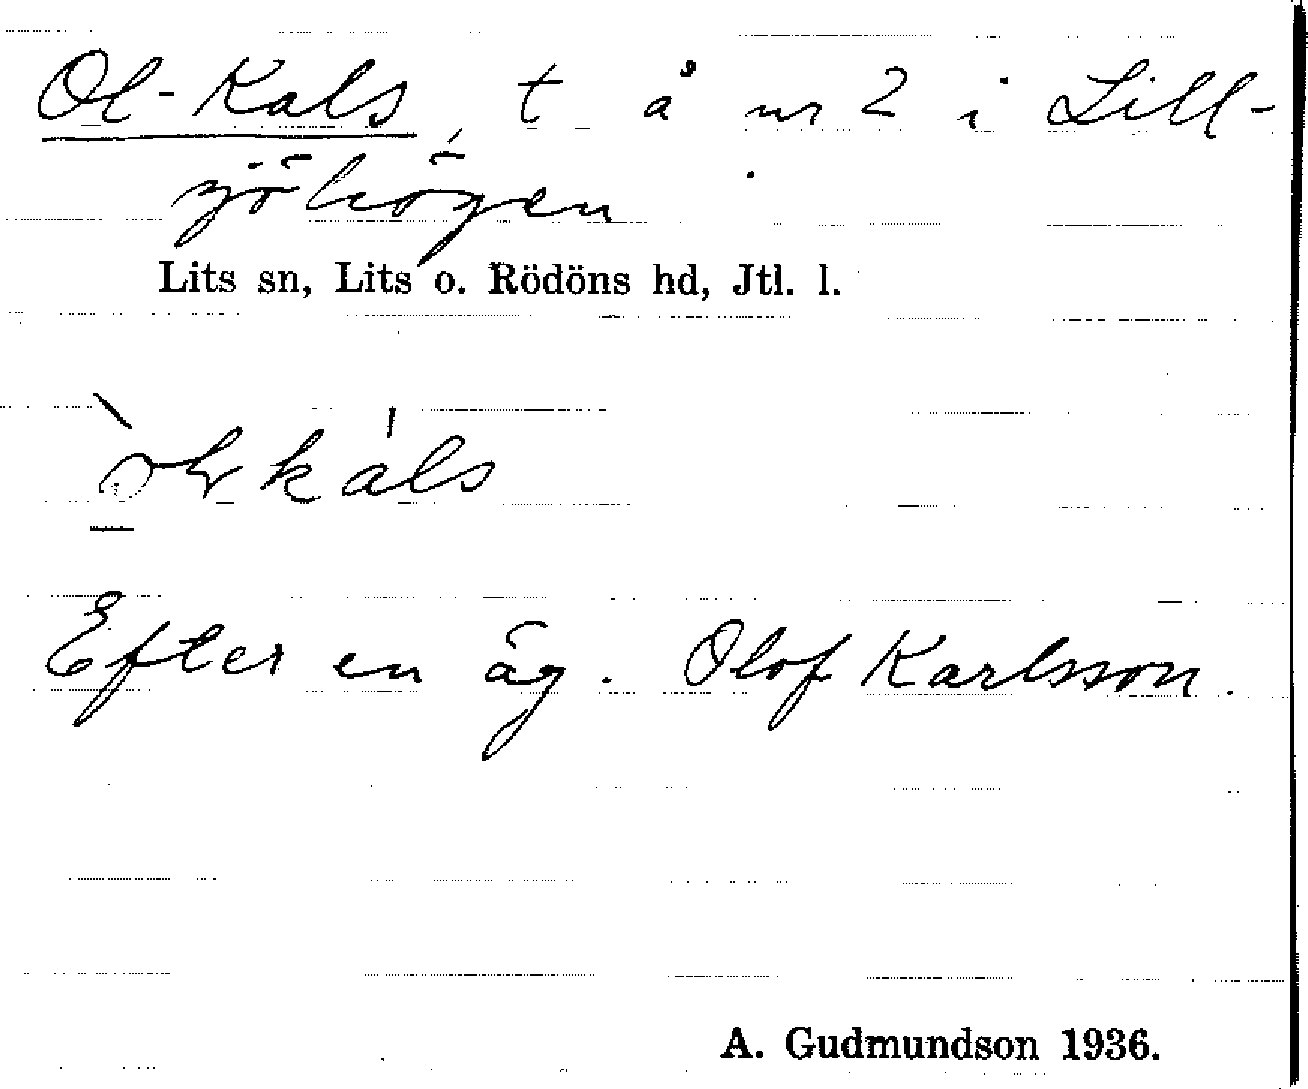 Ol-Kals, t å nr 2 i Lill-
sjöhögen
Lits sn, Lits o. Rödöns hd, Jtl. l.
Efter en äg. Olof Karlsson.
A. Gudmundson 1936.